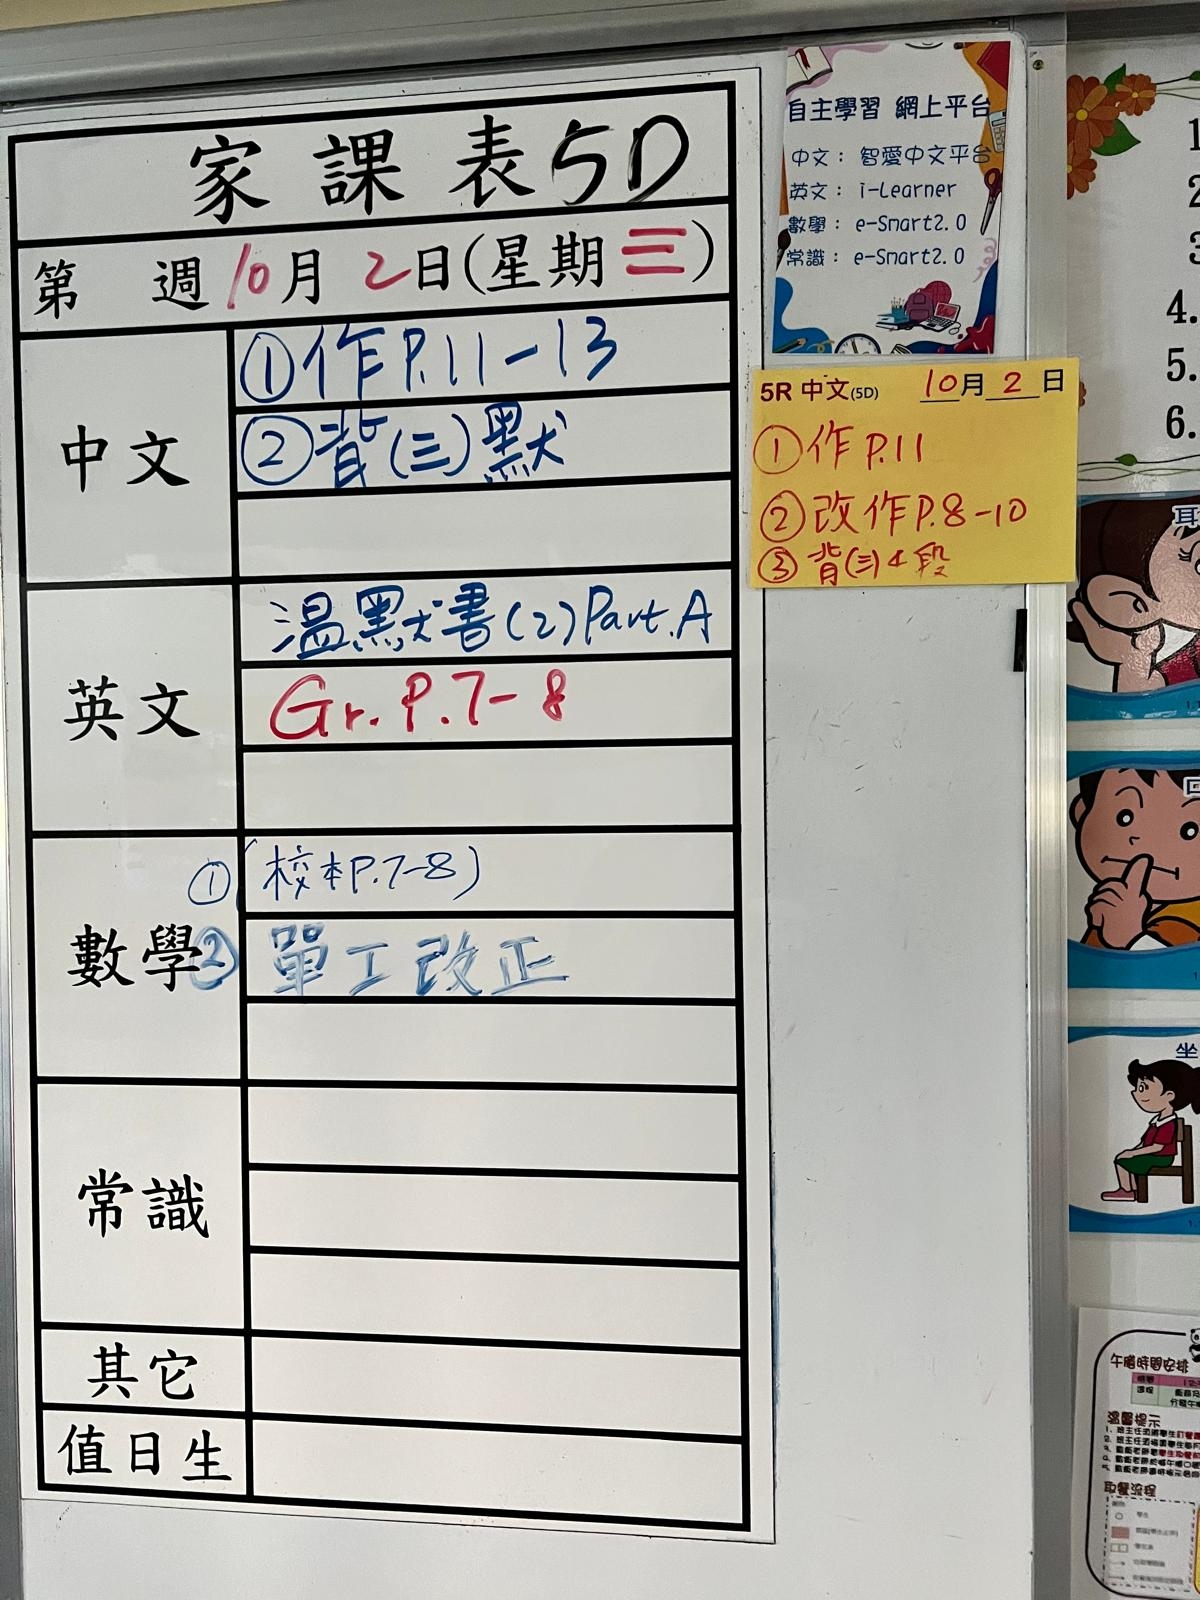 家課表5D
第 週10月2日(星期三)
中文
①作P.11-13
②背(三)默
英文
溫默書(2)Part.A
Gr.P.7-8
數學
①(校本P.7-8)
②單工改正
常識
其它
值日生
自主學習 網上平台
中文：智愛中文平台
英文：i-Learner
數學：e-Smart2.0
常識：e-Smart2.0
5R 中文(5D) 10月2日
①作P.11
②改作P.8-10
③背(三)4段
1
2
3
4.
5.
6.
耳
口
坐
午膳時間安排
溫馨提示
取餐流程